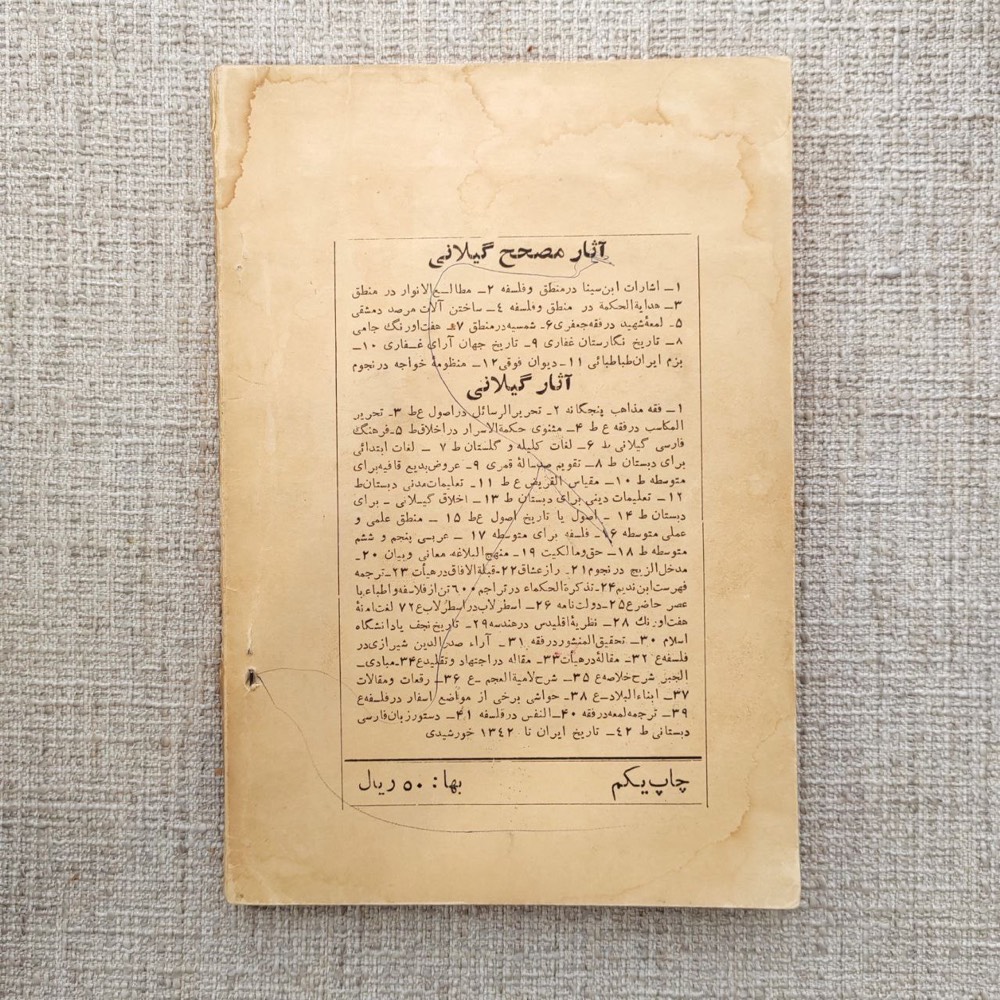 آثار مصحح گیلانی
۱ـ اشارات ابن‌سینا در منطق و فلسفه ۲ـ مطالـع‌الانوار در منطق
۳ـ هدایة‌الحکمة در منطق و فلسفه ٤ـ ساختن آلات مرصد دمشقی
۵ـ لمعهٔ شهید در فقه جعفری ۶ـ شمسیه در منطق ۷ـ هفت اورنگ جامی
۸ـ تاریخ نگارستان غفاری ۹ـ تاریخ جهان آرای غـفـاری ۱۰ـ
بزم ایران طباطبائی ۱۱ـ دیوان فوقی ۱۲ـ منظومهٔ خواجه در نجوم
آثار گیلانی
۱ـ فقه مذاهب پنجگانه ۲ـ تحریر الرسائل در اصول ع‌ط ۳ـ تحریر
المکاسب در فقه ع ط ۴ـ مثنوی حکمة‌الاسرار در اخلاق ط ۵ـ فرهنگ
فارسی گیلانی ط ۶ـ لغات کلیله و گلستان ط ۷ ـ لغات ابتدائی
برای دبستان ط ۸ـ تقویم صدسالهٔ قمری ۹ـ عروض بدیع قافیه برای
متوسطه ط ۱۰ـ مقیاس القریض ع ط ۱۱ـ تعلیمات مدنی دبستان ط
۱۲ـ تعلیمات دینی برای دبستان ط ۱۳ـ اخلاق گیـلانی ـ برای
دبستان ط ۱۴ ـ اصول یا تاریخ اصول ع‌ط ۱۵ ـ منطق علمی و
عملی متوسطه ۱۶ـ فلسفه برای متوسطه ۱۷ ـ عربی پنجم و ششم
متوسطه ط ۱۸ـ حق و مالکیت ۱۹ـ منهج‌البلاغه معانی و بیان ۲۰ـ
مدخل‌الزیج در نجوم ۲۱ـ راز عشاق ۲۲ـ قبلة‌الافاق در هیأت ۲۳ـ ترجمه
فهرست ابن ندیم ۲۴ـ تذکرة‌الحکماء در تراجم ۶۰۰ تن از فلاسفه و اطباء با
عصر حاضر ع ۲۵ـ دولت نامه ۲۶ـ اسطرلاب در اسطرلاب ع ۲۷ لغت‌امهٔ
هفت اورنگ ۲۸ـ نظریهٔ اقلیدس در هندسه ۲۹ـ تاریخ نجف یا دانشگاه
اسلام ۳۰ـ تحقیق المنشور در فقه ۳۱ـ آراء صدرالدین شیرازی در
فلسفه ع ۳۲ـ مقالهٔ در هیأت ۳۳ـ مقاله در اجتهاد و تقلید ع ۳۴ـ مبادی ـ
الجبر شرح خلاصه ع ۳۵ـ شرح لامیة‌العجم ـ ع ۳۶ـ رقعات و مقالات
۳۷ـ ابناء‌البلاد ـ ع ۳۸ـ حواشی برخی از مواضع اسفار در فلسفه ع
۳۹ـ ترجمه لمعه در فقه ۴۰ـ النفس در فلسفه ۴۱ـ دستور زبان فارسی
دبستانی ط ۴۲ـ تاریخ ایران تا ۱۳۴۲ خورشیدی
چاپ یـکم
بها : ۵۰ ریال